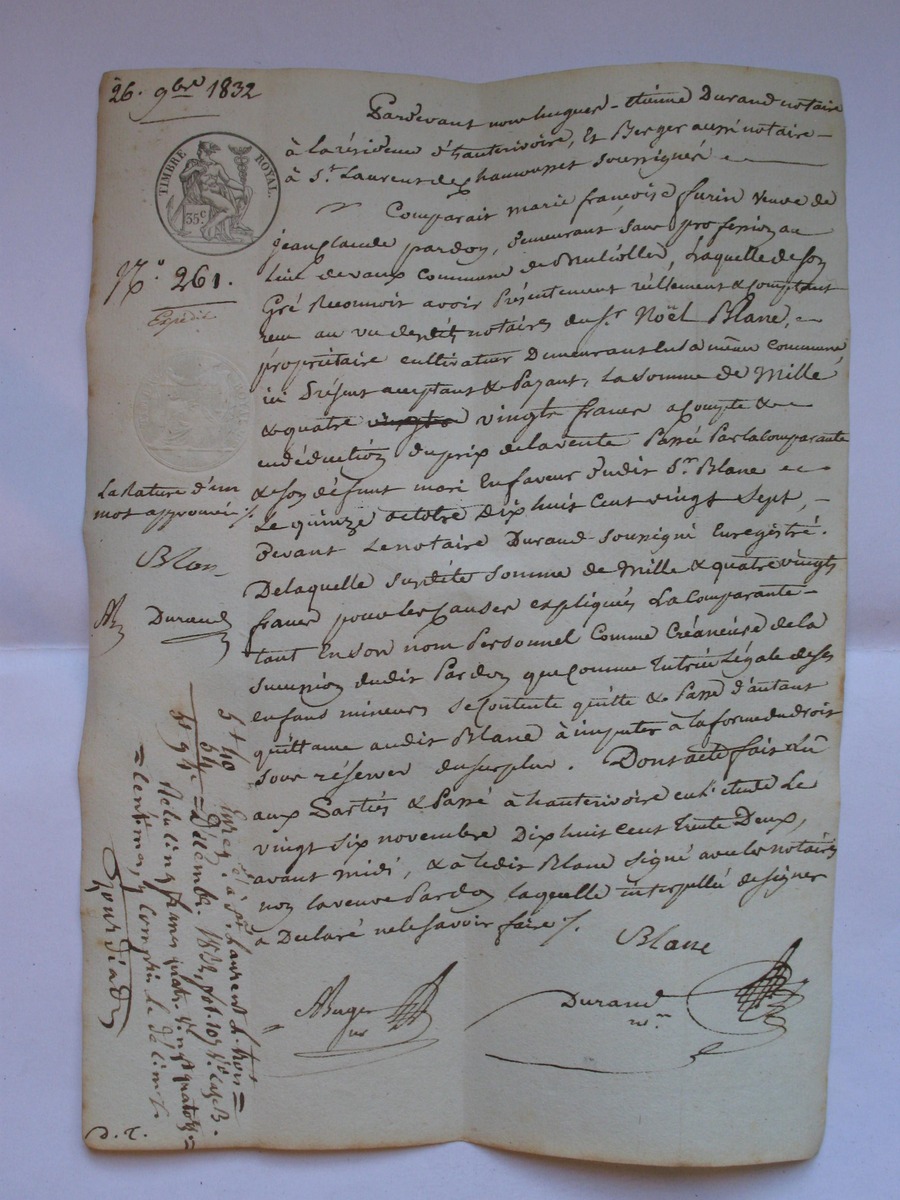 26. 9bre 1832
TIMBRE ROYAL
35c
N.o 261.
Expédié
Pardevant nous hugues-étienne Durand notaire
à la résidence d'hauterivoire, Et Berger aussi notaire
à St. Laurent de Chamousset soussignés
Comparait marie françoise furin veuve de
jean claude pardon, demeurant sans profession au
lieu de vaux commune de Brulliolles, Laquelle de son
Gré Reconnoit avoir Présentement réellement & comptant
reçu au vu desdits notaires du sr. Noël Blanc,
propriétaire cultivateur Demeurant en la même commune
ici Présent acceptant & Payant, la somme de Mille
& quatre vingts francs acompte &
en déduction du prix de la vente Passée Par la comparante
& son défunt mari En faveur dudit Sr. Blanc
Le quinze octobre Dix huit Cent vingt Sept,
Devant Le notaire Durand soussigné Enregistré.
De laquelle susdite somme de Mille & quatre vingts
francs pour les causes expliquées La comparante
tant En son nom Personnel Comme Créancière de la
succession dudit Pardon que Comme tutrice Légale de ses
enfans mineurs se contente quitte & Passe d'autant
quittance audit Blanc à imputer à la forme du droit
sous réserve du surplus. Dont acte fait Lû
aux Parties & Passé à hauterivoire en l'étude Le
vingt six novembre Dix huit Cent trente Deux,
avant midi, & a ledit Blanc signé avec les notaires
non la veuve Pardon laquelle interpellée de signer
a Déclaré ne le savoir faire /.
La Rature d'un
mot approuvée /.
Blan
AB
Durand
Blanc
ABerger
nre
Durand
nre
5 + 40
54
5 94
Enreg. à St. Laurent le trois
Décembre 1832, fol. 107
Reçu cinq francs quatre vingt quatorze
centimes, y compris le décime /.
D. T.